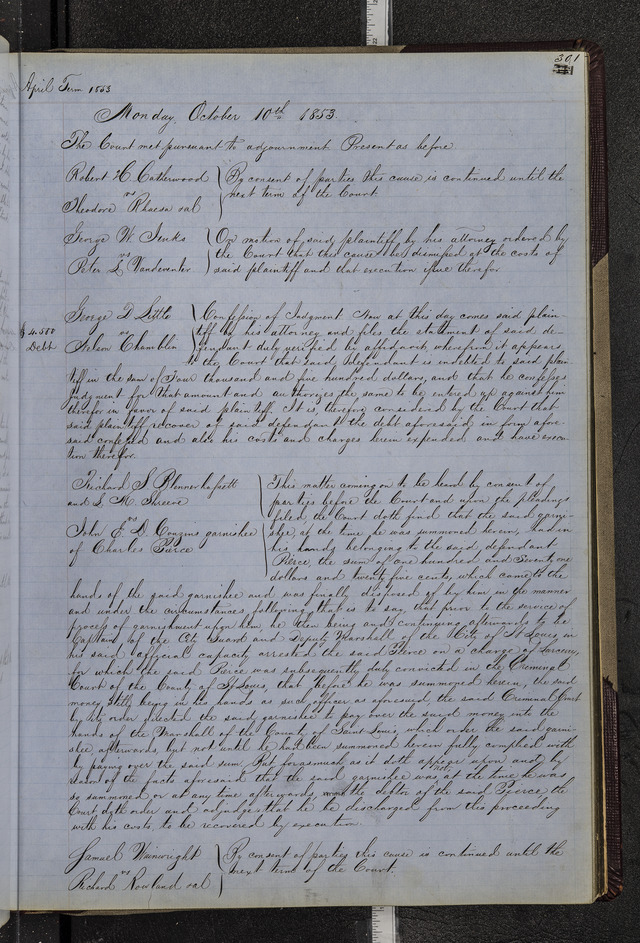 301
April Term 1853
Monday, October 10th 1853.
The Court met pursuant to adjournment Present as before.
Robert H. Catherwood
vs
Theodore et al
By consent of parties this cause is continued until the
next term of the Court.
George W. Jenks
vs
Peter L. Vandeventer
On motion of said plaintiff by his attorney ordered by
the Court that this cause be dismissed at the costs of
said plaintiff and that execution issue therefor
$4.500
Debt
George T. Little
vs
Nelson Chamblin
Confession of Judgment Now at this day comes said plain-
tiff by his attorney and files the statement of said de-
fendant duly verified by affidavit wherefrom it appears
to the Court that said defendant is indebted to said plain
tiff in the sum of Four thousand and five hundred dollars, and that he confesses
judgment for that amount and authorizes the same to be entered up against him
therefor in favor of said plaintiff. It is, therefore considered by the Court that
said plaintiff recover of said defendant the debt aforesaid in form afore
said confessed and also his costs and charges herein expended and have execu
tion therefor.
S.
and L. M. Shreeve
vs
John E. D. Couzins garnishee
of Charles Pierce
This matter coming on to be heard by consent of
parties before the Court and upon the pleadings
filed, the Court doth find that the said garni-
shee, at the time he was summoned herein, had in
his hands belonging to the said defendant
Pierce the sum of one hundred and seventy one
dollars and twenty five cents, which came to the
hands of the said garnishee and was finally disposed of by him in the manner
and under the circumstances following, that is to say, that prior to the service of
process of garnishment upon him, he then being and continuing afterwards to be
Captain of the City Guard and Deputy Marshall of the City of St Louis, in
his said official capacity arrested the said Pierce on a charge of Larceny,
for which the said Pierce was subsequently duly convicted in the Criminal
Court of the County of St Louis, that before he was summoned herein, the said
money still being in his hands as such officer as aforesaid, the said Criminal Court
by its order directed the said garnishee to pay over the said money into the
hands of the Marshall of the County of Saint Louis, which order the said garni-
shee afterwards, but not until he had been summoned herein fully complied with
by paying over the said sum. But forasmuch as it doth appear upon and by
reason of the facts aforesaid that the said garnishee was not at the time he was
so summoned or at any time afterwards the debtor of the said Pierce, the
Court doth order and adjudge that he be discharged from this proceeding
with his costs, to be recovered by execution.
Samuel Wainwright
vs
Richard Rowland et al
By consent of parties this cause is continued until the
next term of the Court.